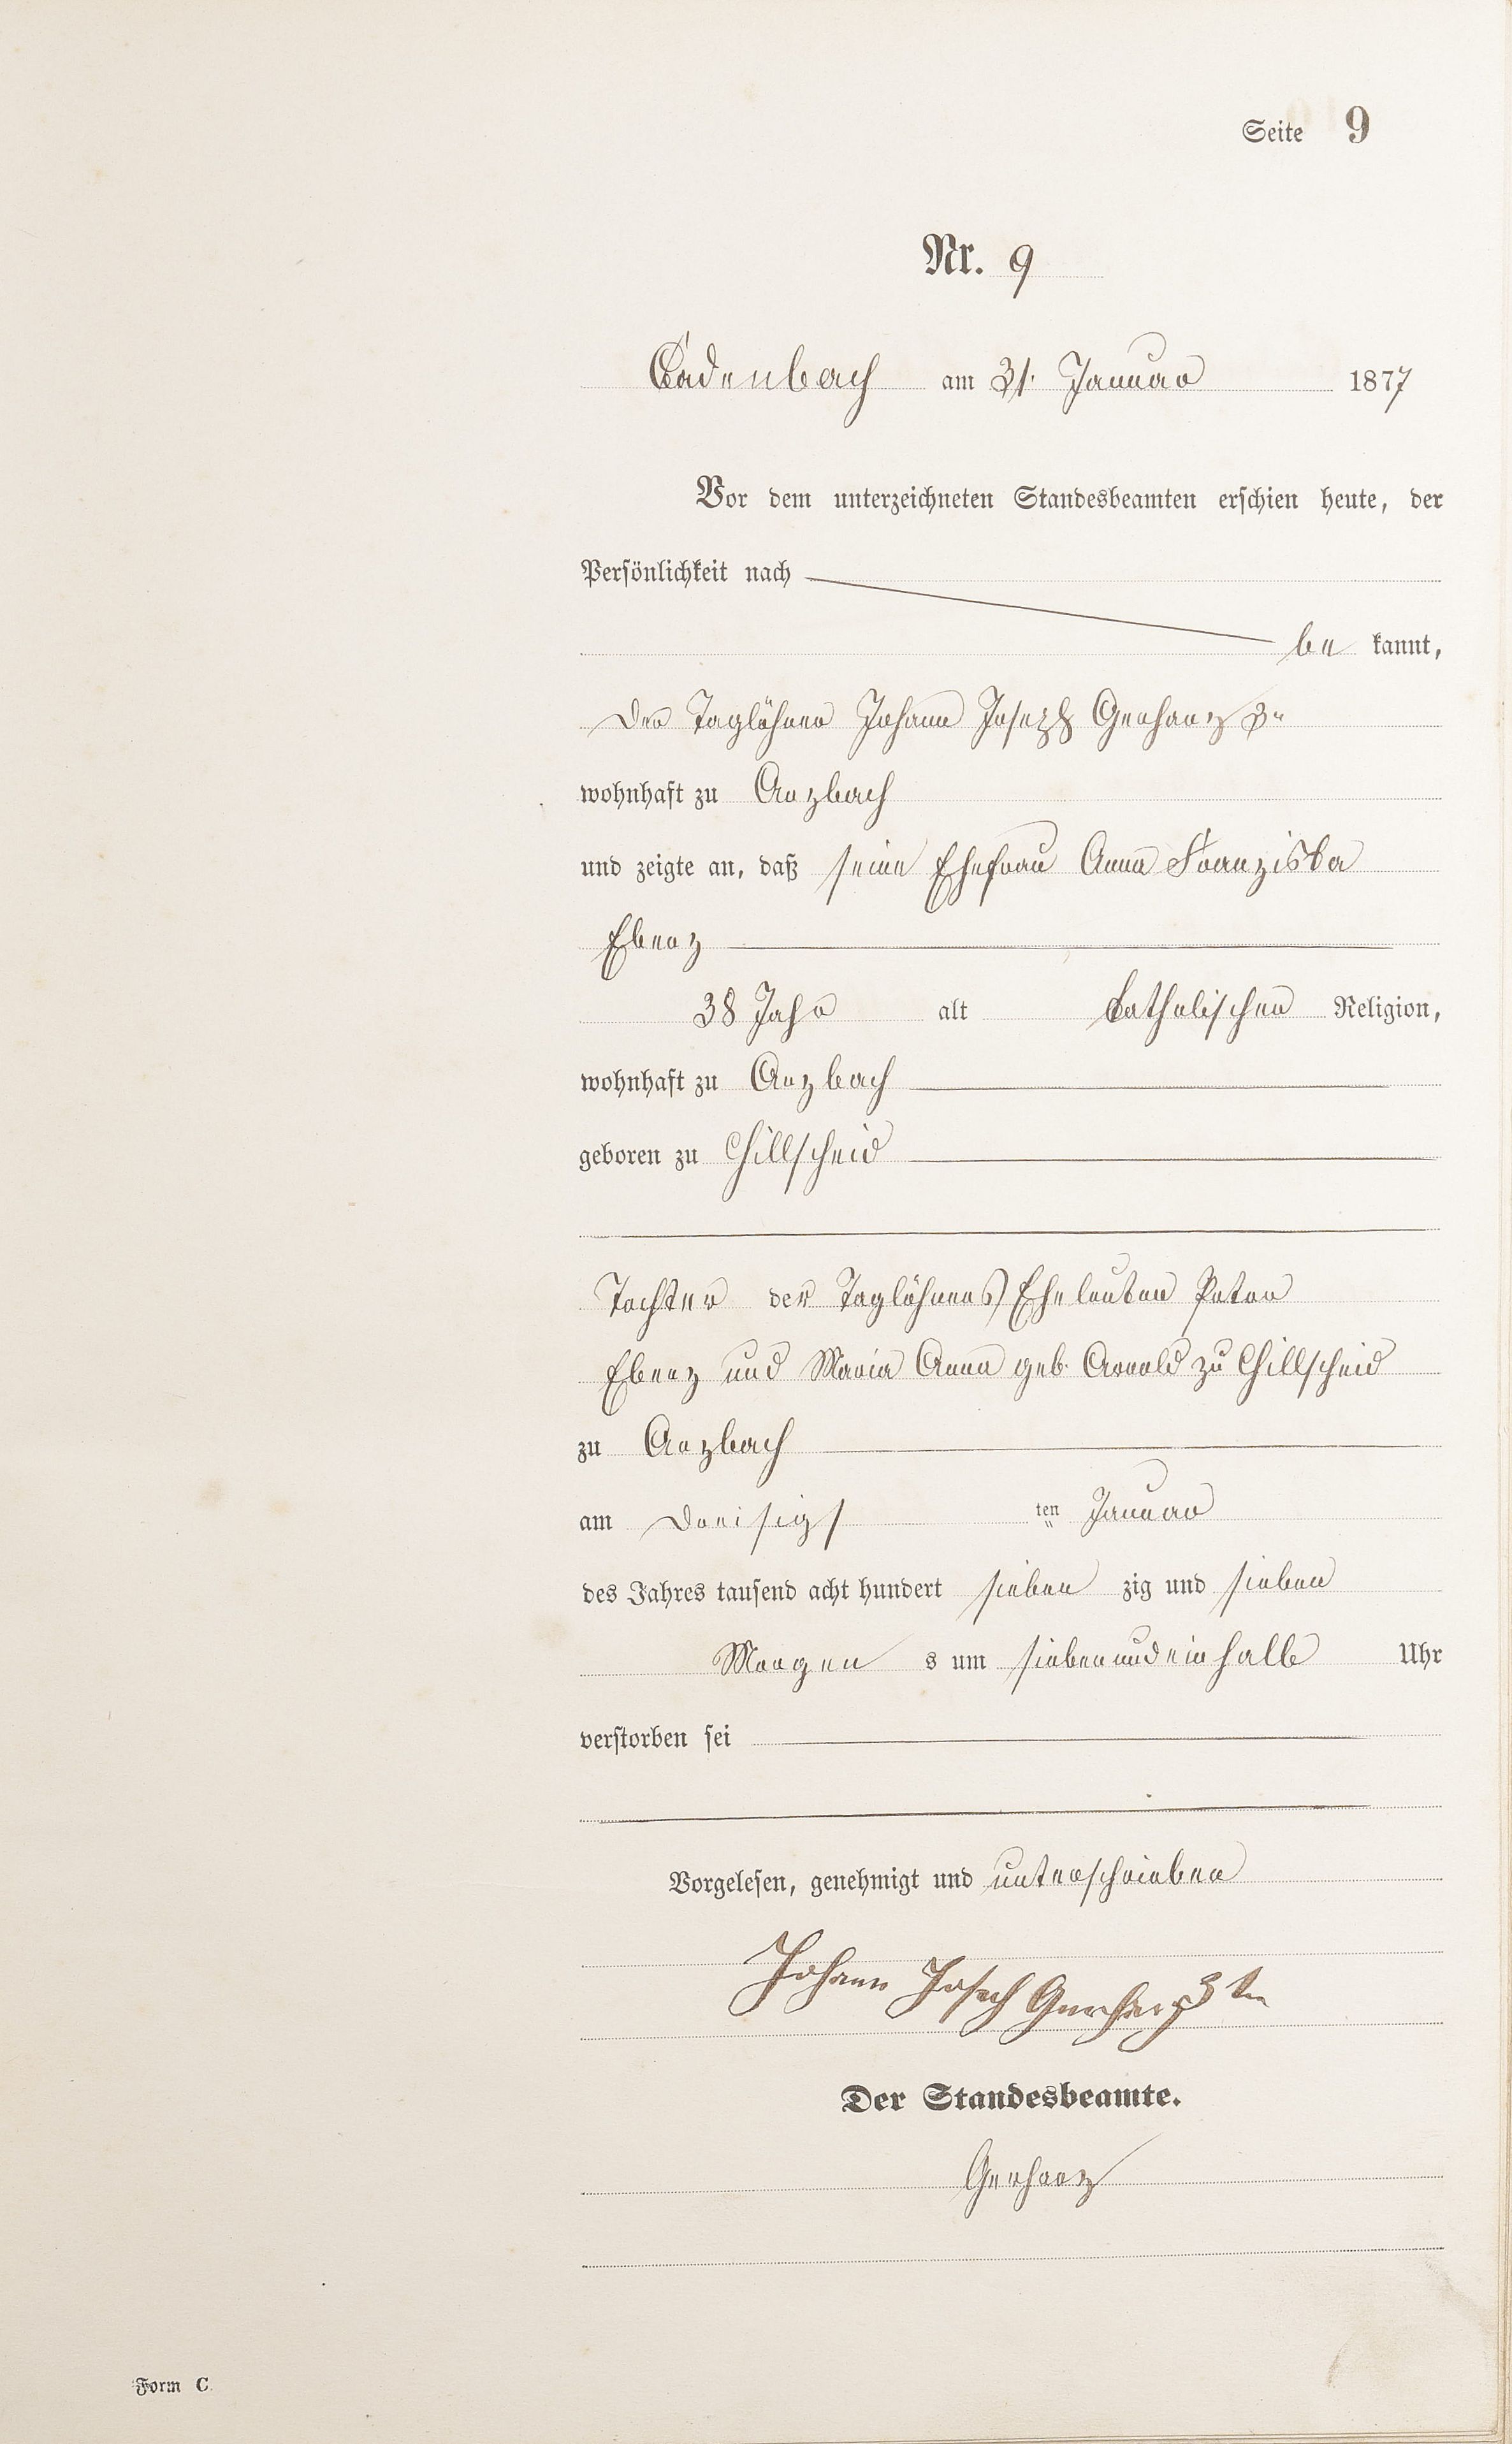 Seite 9
Nr. 9
Cadenbach am 31. Januar 1877
Vor dem unterzeichneten Standesbeamten erschien heute, der
Persönlichkeit nach
be kannt,
der Taglöhner Johann Joseph Gerharz 3r
wohnhaft zu Arzbach
und zeigte an, daß seine Ehefrau Anna Franziska
Eberz
38 Jahr alt katholischer Religion,
wohnhaft zu Arzbach
geboren zu Hillscheid
Tochter der Taglöhners Eheleuten Peter
Eberz und Maria Anna geb. Arnold zu Hillscheid
zu Arzbach
am dreisigs ten Januar
des Jahres tausend acht hundert sieben zig und sieben
Morgen s um siebenundeinhalb Uhr
verstorben sei
Vorgelesen, genehmigt und unterschrieben
Johann Josech Gerharz 3ter
Der Standesbeamte.
Gerharz
Form C.